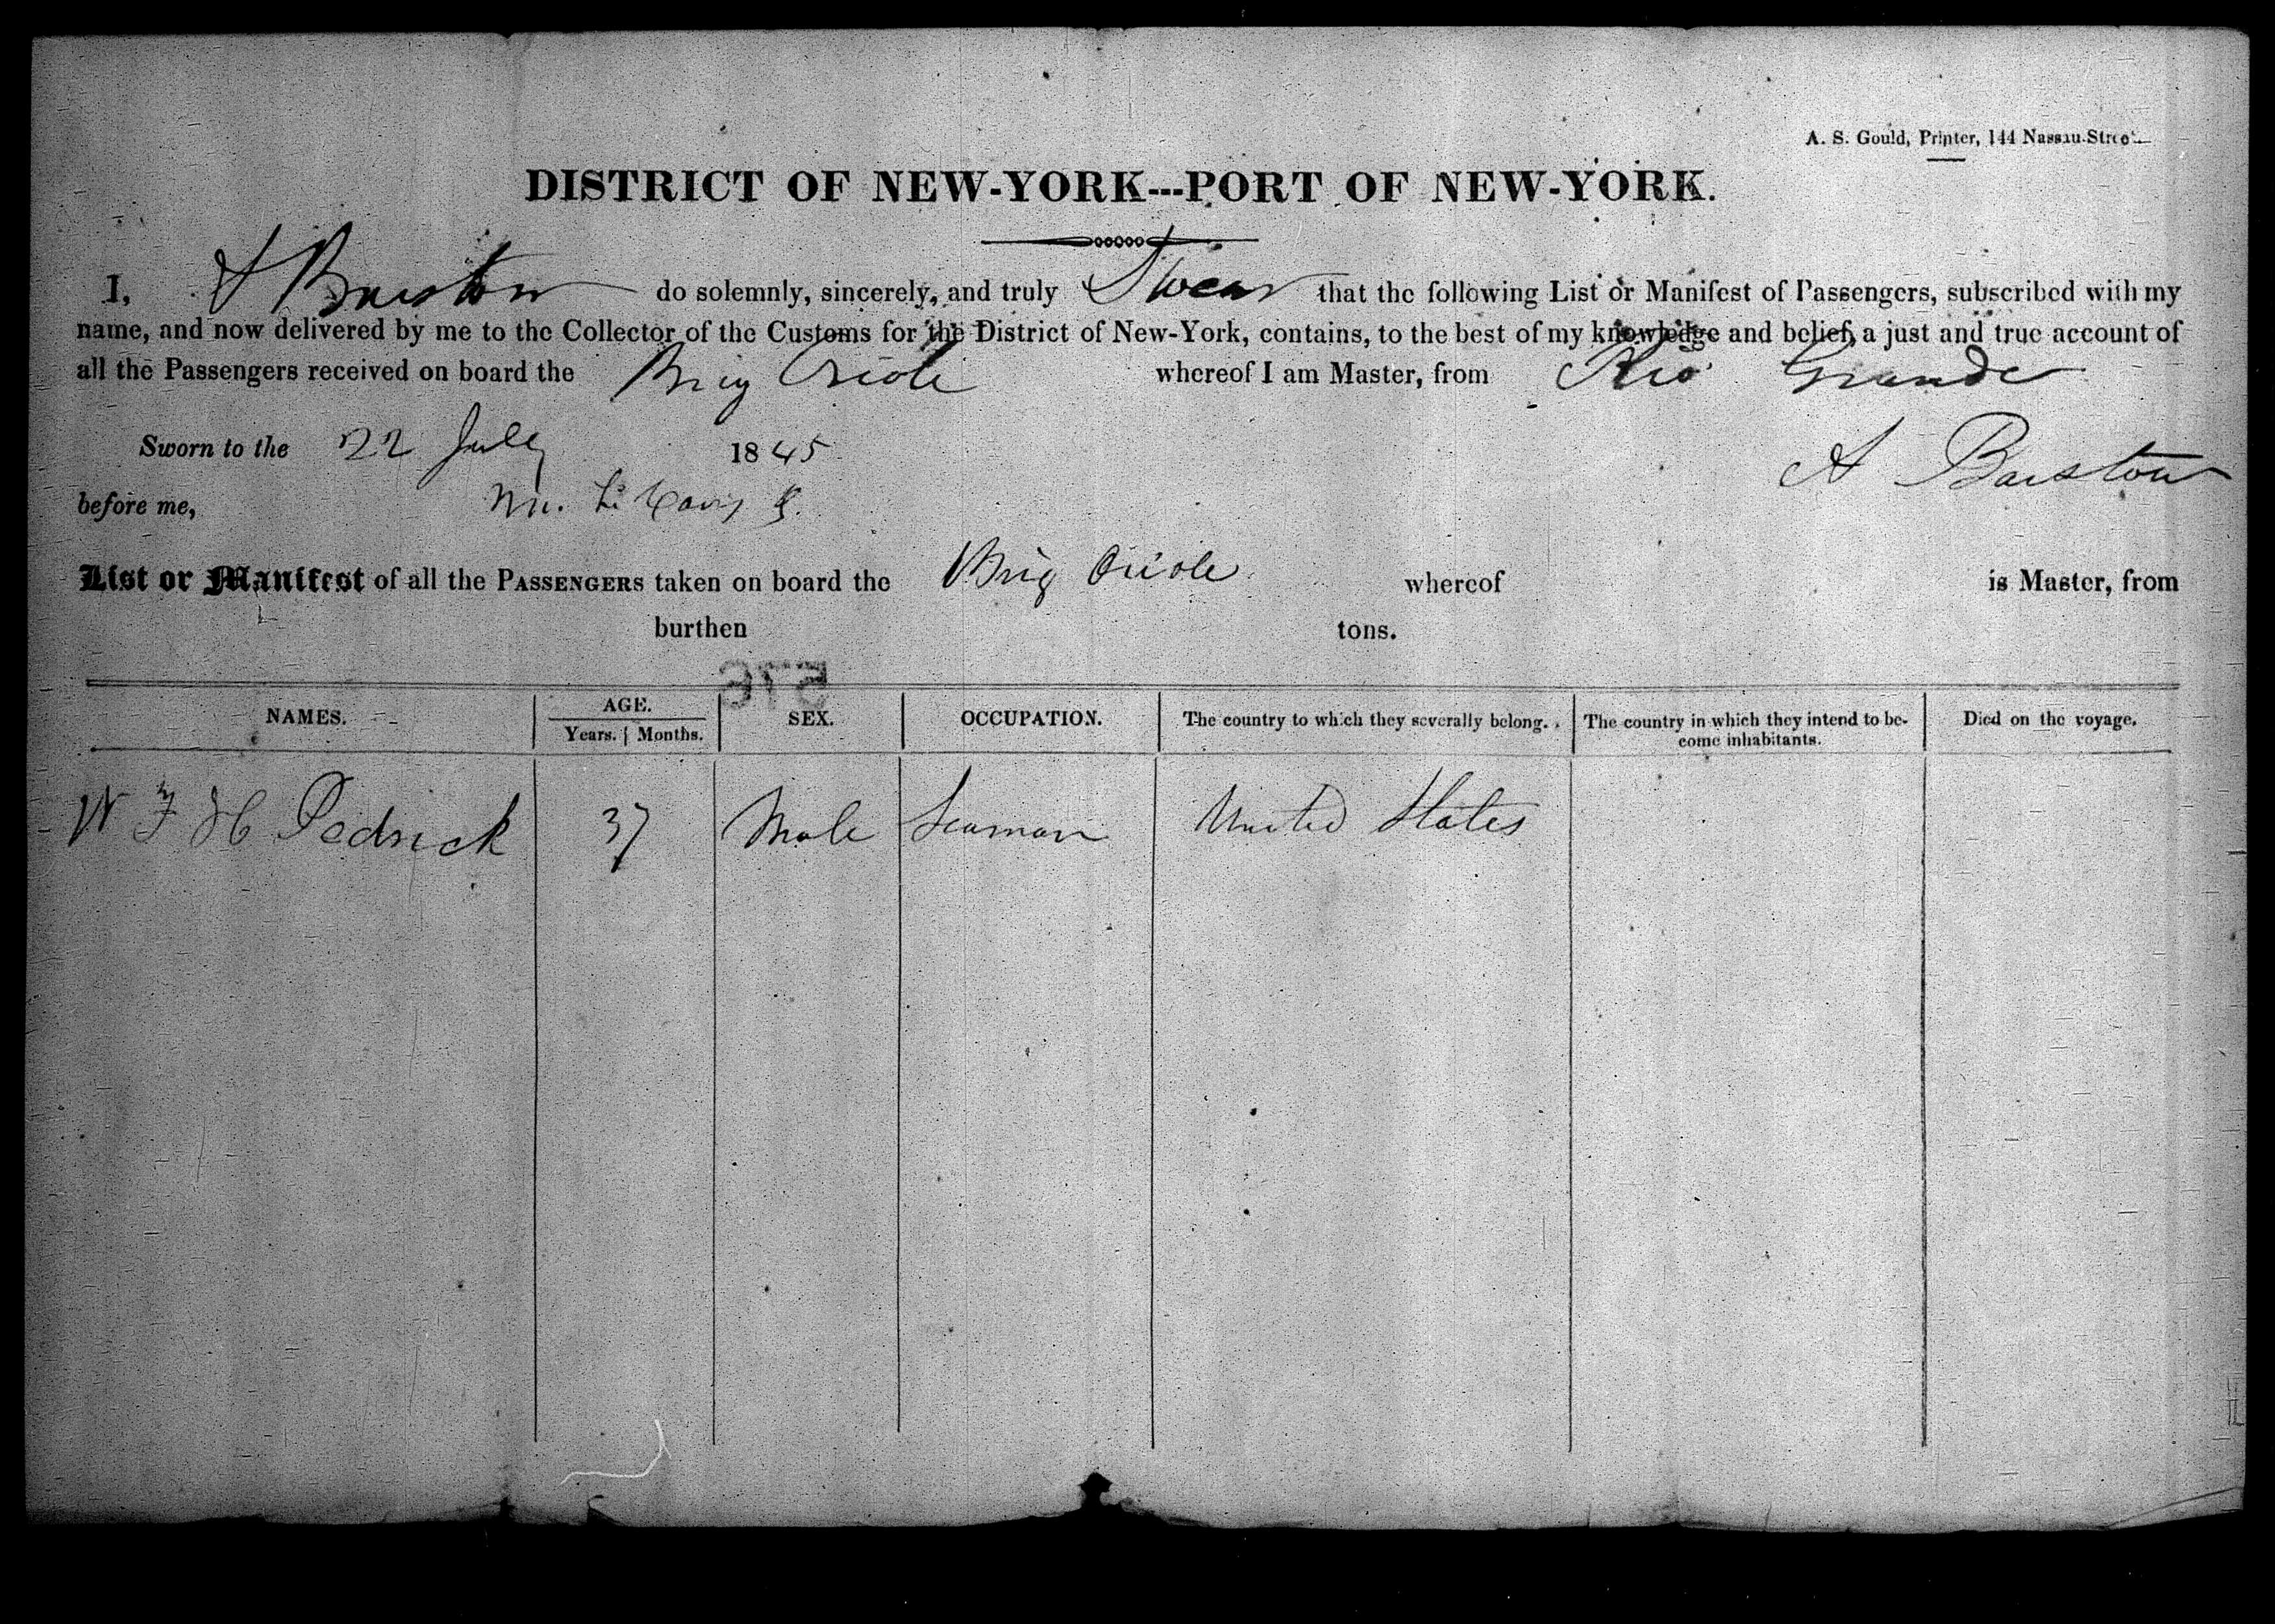 A. S. Gould, Printer, 144 Nassau-Street
DISTRICT OF NEW-YORK---PORT OF NEW-YORK.
I, A Barstow do solemnly, sincerely, and truly Swear that the following List or Manifest of Passengers, subscribed with my
name, and now delivered by me to the Collector of the Customs for the District of New-York, contains, to the best of my knowledge and belief, a just and true account of
all the Passengers received on board the Brig Oriole whereof I am Master, from Rio Grande
Sworn to the 22 July 1845
A Barstow
before me,
List or Manifest of all the PASSENGERS taken on board the Brig Oriole whereof is Master, from
burthen tons.
576
NAMES. AGE. SEX. OCCUPATION. The country to which they severally belong. The country in which they intend to be- Died on the voyage.
Years. Months. come inhabitants.
W F H Pedrick 37 Male Seaman United States